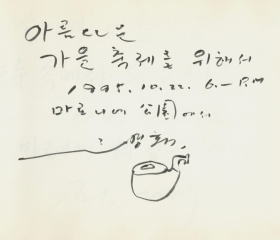 아름다운
가을 축제를 위해서
1995. 10. 22. 6-P.M
마로니에 公園에서